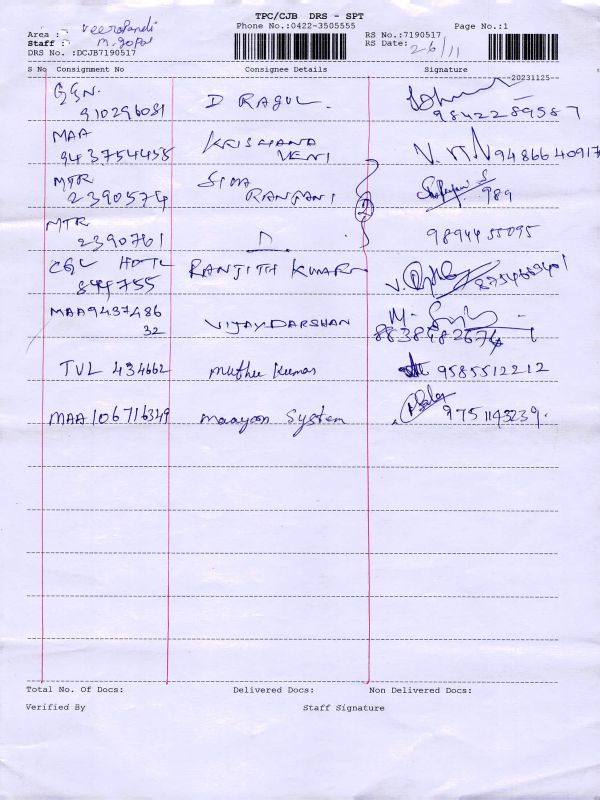 TPC/CJB DRS - SPT
Phone No.:0422-3505555 Page No.:1
Area : Veerapandi
Staff : M. gopal
RS No.:7190517
RS Date: 26/11
DRS No. :DCJB7190517
S No Consignment No Consignee Details Signature
20231125
GGN.
910296081 D RAGUL. 9842289587
MAA
943754455 KRISHANA
VENI 9486640917
MTR
2390574 SIVA
RANJANI 989
2
MTR
2390761 9894455095
CGL HOTL
844755 RANJITH KUMAR
MAA9437486
32 VIJAY DARSHAN M.
8838482674
TVL 434662 muthu kumar 9585512212
MAA106716349 maayon System 9751143239.
Total No. Of Docs: Delivered Docs: Non Delivered Docs:
Verified By Staff Signature